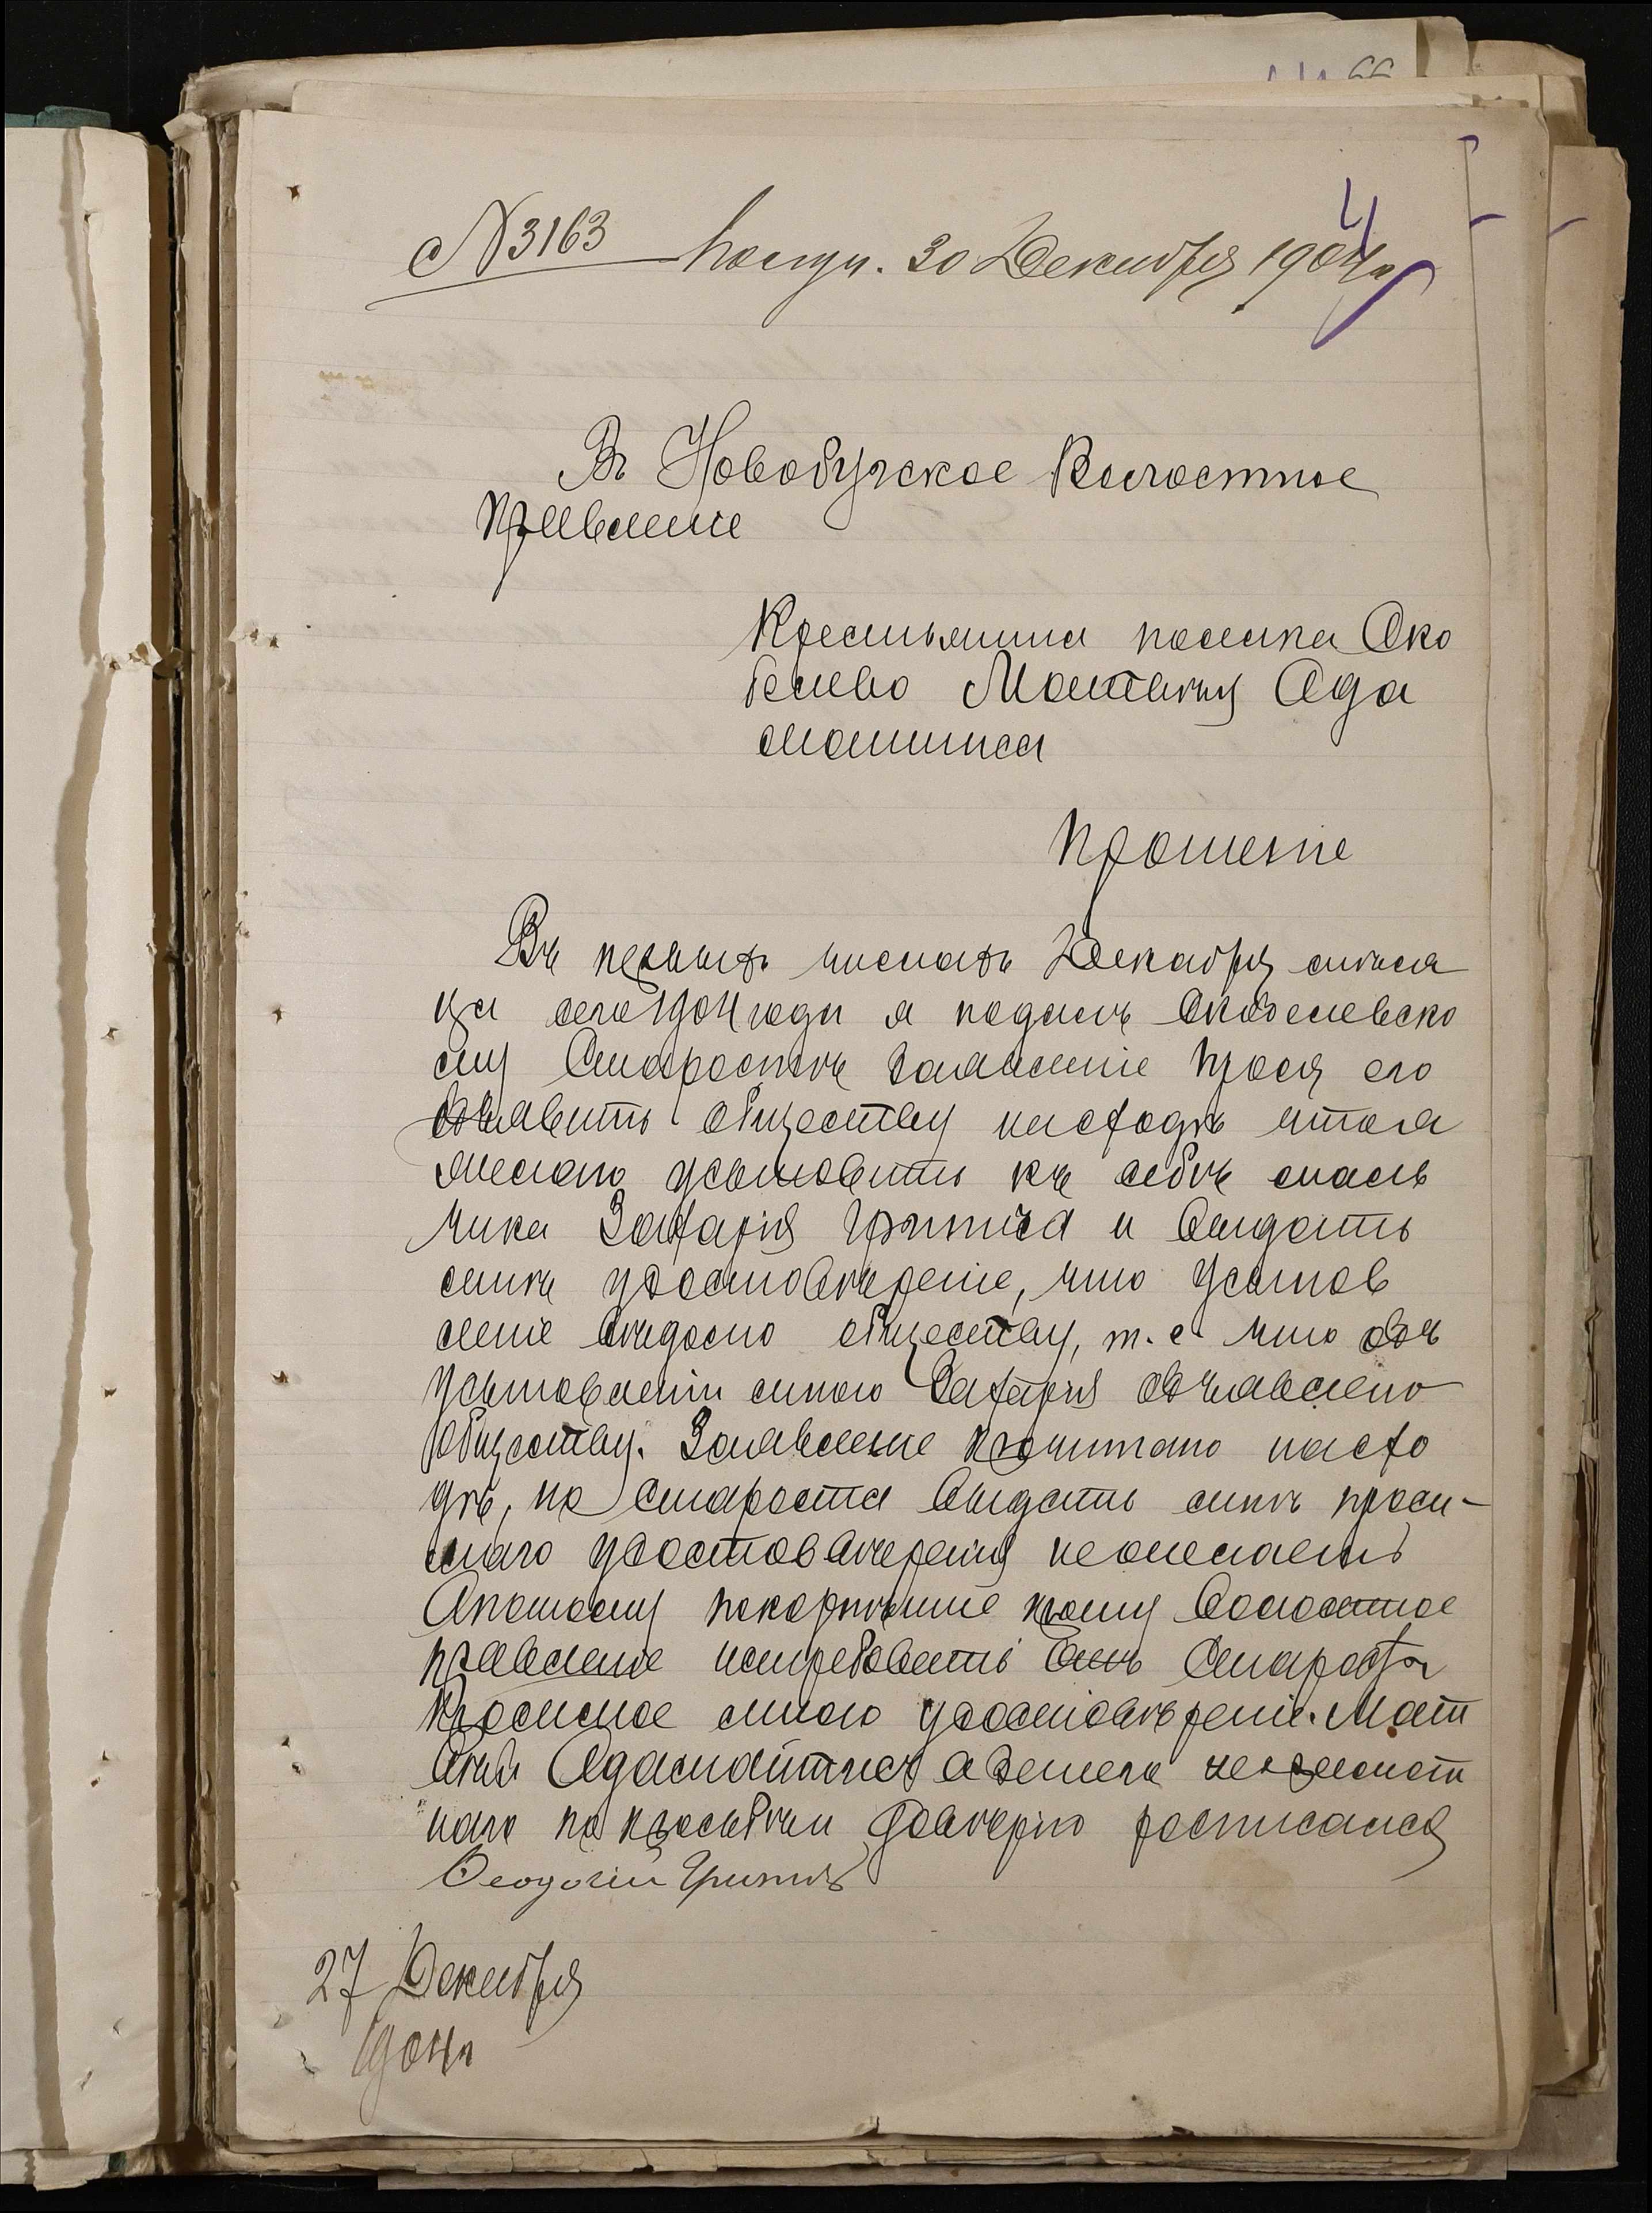 № 3163 поступ. 30 Декабря 1904 г.
4
Въ Новобугское Волостное
Правленіе
Крестьянина поселка Ско
белево Матвѣя Ада
Прошеніе
Въ первыхъ числахъ Декабря мѣся
ца сего 1904 года я подалъ Скобелевско
му Старостѣ заявленіе прося его
объявить обществу насходѣ что я
желаю усыновить къ себѣ маль
чика Захарія Грипича и выдать
мнѣ удостовѣреніе, что усынов
леніе вѣдомо обществу, т. е. что объ
усыновленіи мною Захарія объявлено
обществу. Заявленіе прочитано насхо
дѣ, но Староста выдать мнѣ проси-
маго удостовѣренія нежелаетъ
Апотому покорнѣйше прошу Волостное
правленіе истребовать отъ Старосты
просимое мною удостовѣреніе. Мат
вѣй а занего неграмот
наго по прозьбѣ и довѣрію росписался
27 Декабря
1904 г.